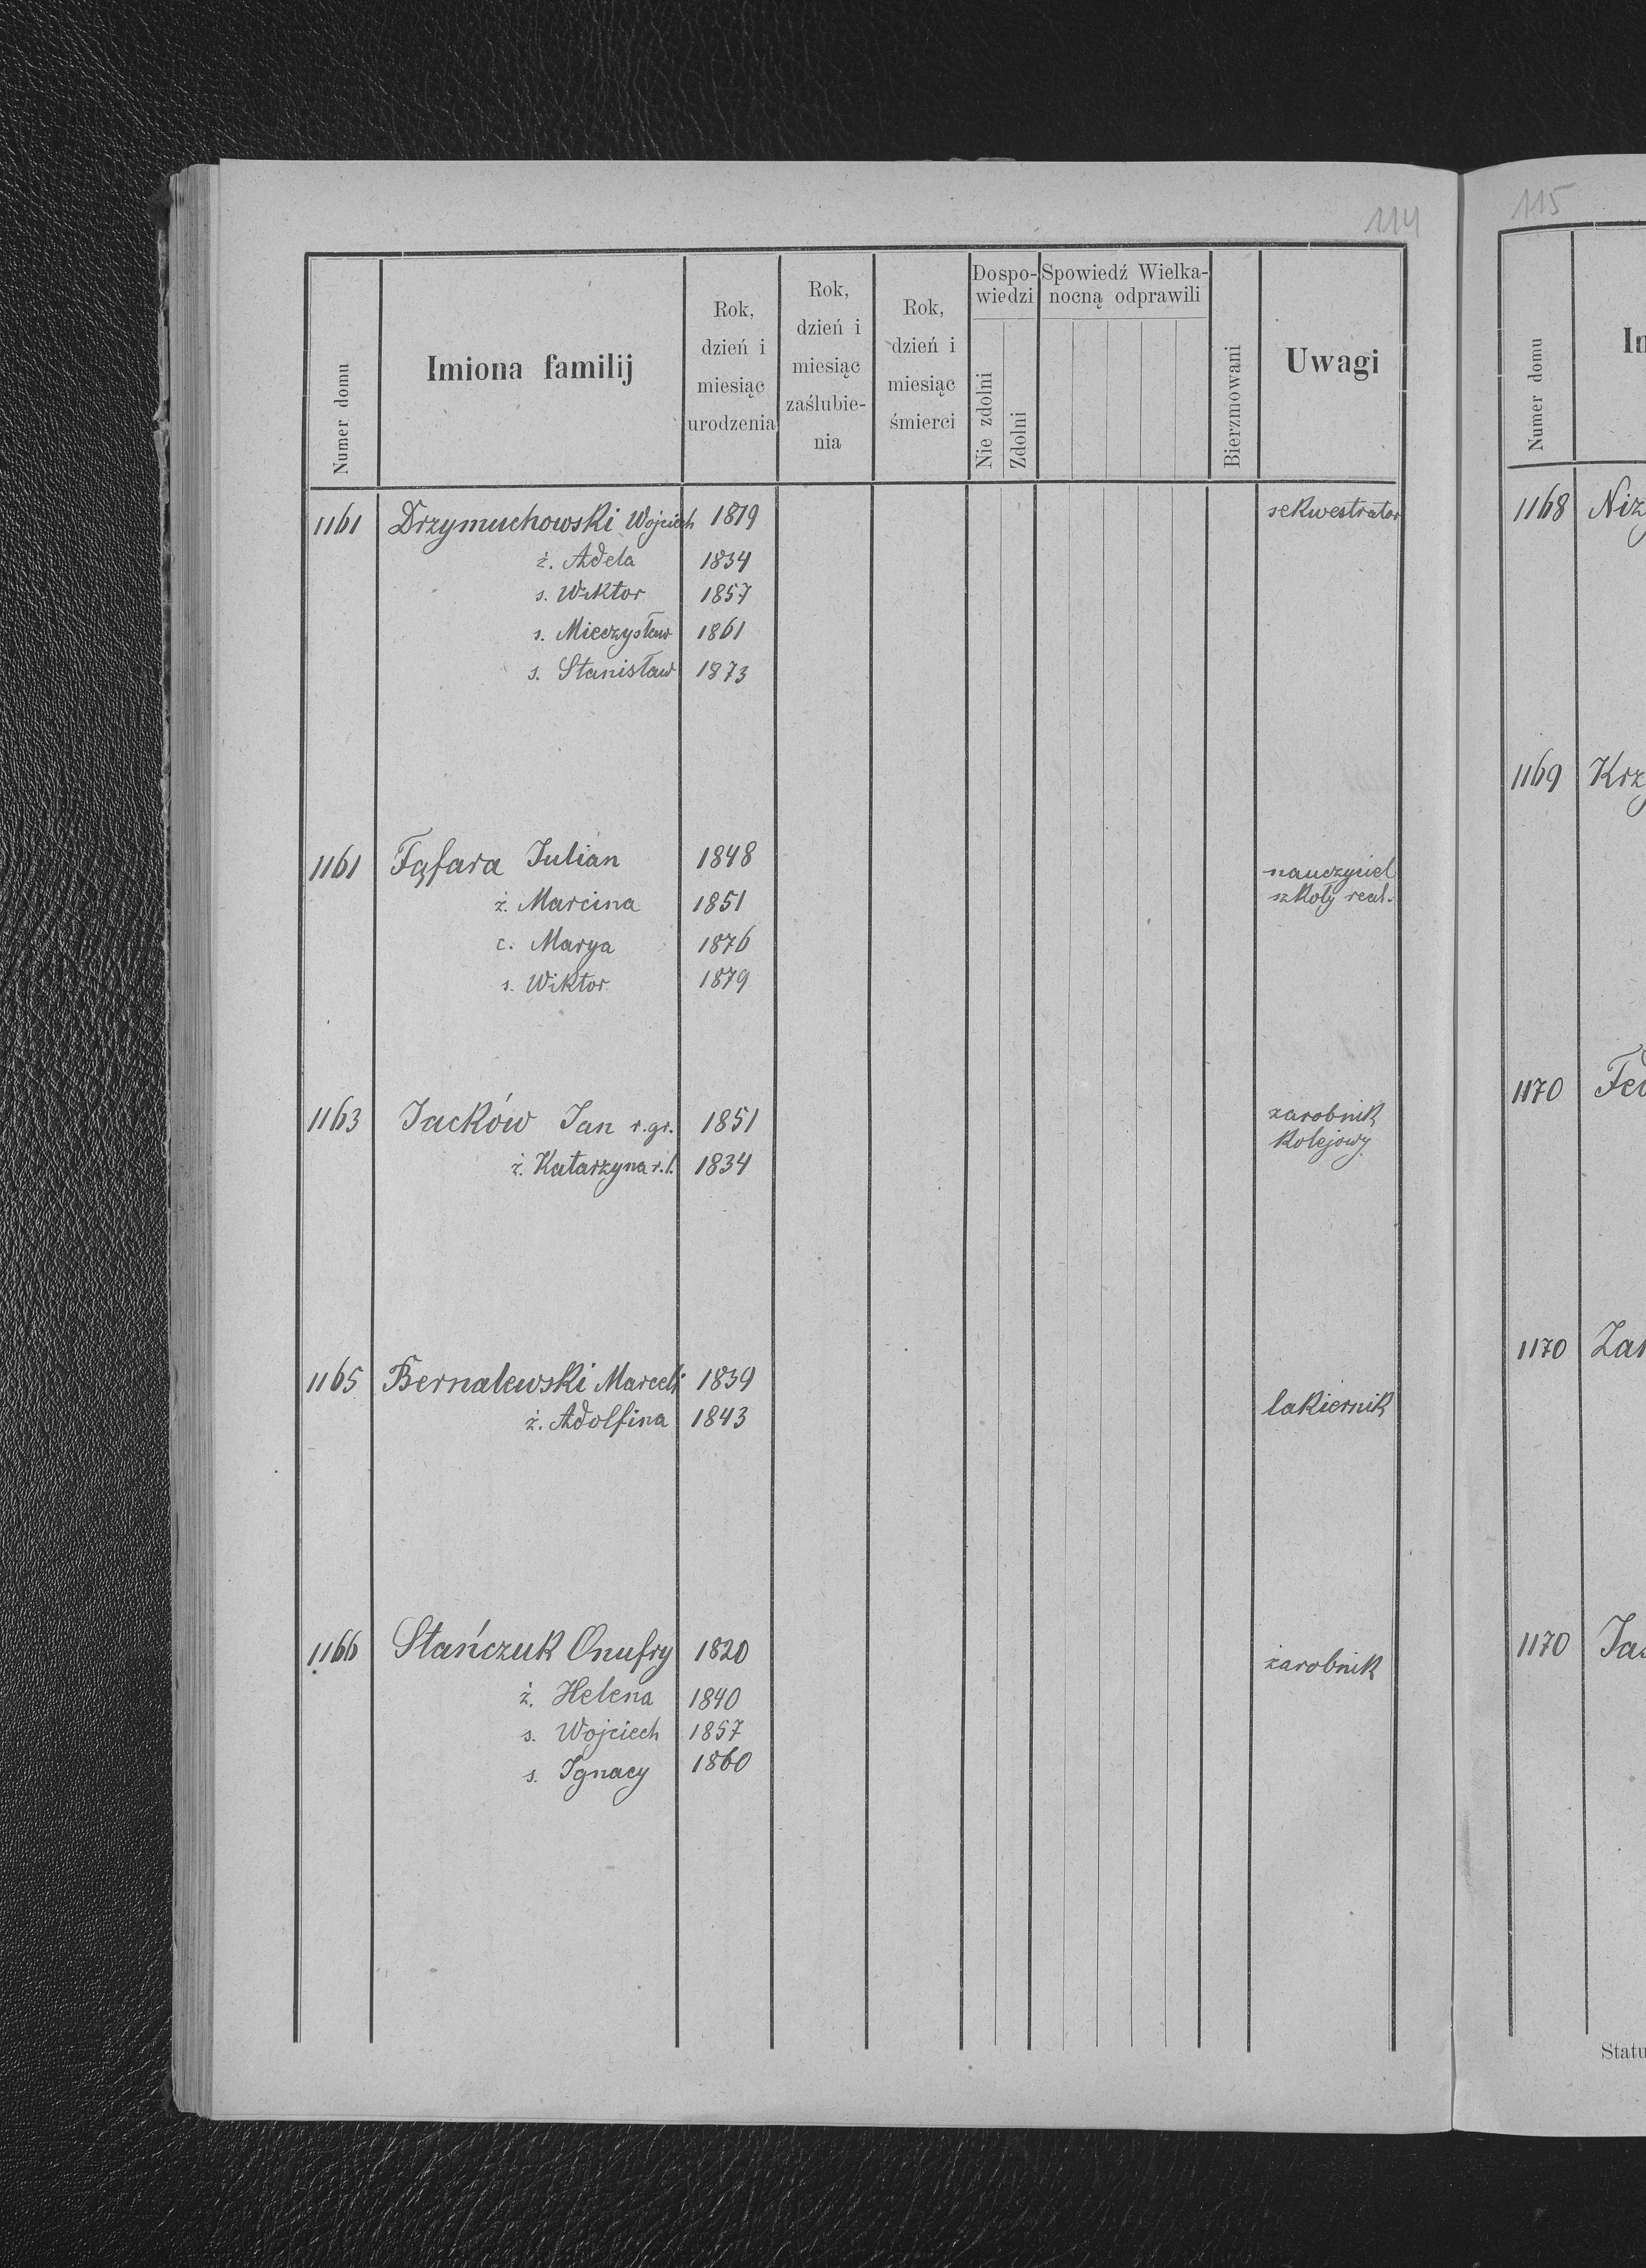 114
115
Numer domu
Imiona familij
Rok, dzień i miesiąc urodzenia
Rok, dzień i miesiąc zaślubie- nia
Rok, dzień i miesiąc śmierci
Dospo- wiedzi
Nie zdolni
Zdolni
Spowiedź Wielka- nocną odprawili
Bierzmowani
Uwagi
1161 Drzymuchowski Wojciech 1819 sekwestrator
ż. Adela 1834
s. Wiktor 1857
s. Mieczysław 1861
s. Stanisław 1873
1161 Fąfara Julian 1848 nauczyciel
ż. Marcina 1851 szkoły real.
c. Marya 1876
s. Wiktor 1879
1163 Jacków Jan r.gr. 1851 zarobnik
kolejowy.
ż. Katarzyna r.l. 1834
1165 Bernalewski Marceli 1839
ż. Adolfina 1843 lakiernik
1166 Stańczuk Onufry 1820 zarobnik
ż. Helena 1840
s. Wojciech 1857
s. Ignacy 1860
Numer domu
1168 Niz
1169 Krz
1170
1170
1170
Statu